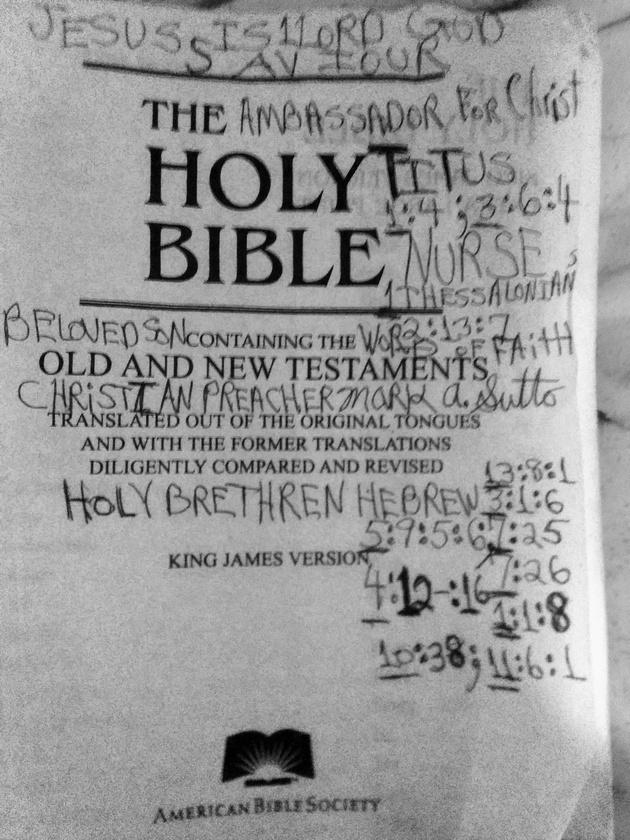 JESUS IS LORD GOD
SAVIOUR
THE AMBASSADOR FOR Christ
HOLY TITUS
1:4 ; 3:6:4
BIBLE NURSE
1THESSALONIANs
BELOVED SON CONTAINING THE WORDS OF FAITH
2:13:7
OLD AND NEW TESTAMENTS
CHRISTIAN PREACHER MARK a. Sutto
TRANSLATED OUT OF THE ORIGINAL TONGUES
AND WITH THE FORMER TRANSLATIONS
DILIGENTLY COMPARED AND REVISED
13:8:1
HOLY BRETHREN HEBREW 3:1:6
5:9:5:6;7:25
KING JAMES VERSION
7:26
4:12-:16
1:1:8
10:38; 11:6:1
AMERICAN BIBLE SOCIETY